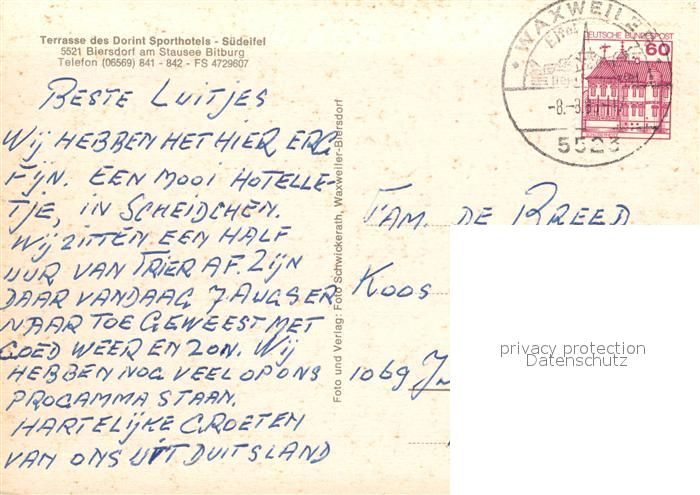 Terrasse des Dorint Sporthotels - Südeifel
5521 Biersdorf am Stausee Bitburg
Telefon (06569) 841 - 842 - FS 4729607
BESTE LUITJES
WIJ HEBBEN HET HIER ERG
FIJN. EEN MOOI HOTELLE-
TJE, IN SCHEIDCHEN.
WIJ ZITTEN EEN HALF
UUR VAN TRIER AF. ZIJN
DAAR VANDAAG 7 AUGS ER
NAAR TOE GEWEEST MET
GOED WEER EN ZON. WIJ
HEBBEN NOG VEEL OP ONS
PROGAMMA STAAN.
HARTELIJKE GROETEN
VAN ONS UIT DUITSLAND
Foto und Verlag: Foto Schwickerath, Waxweiler-Biersdorf
WAXWEILER
5523
DEUTSCHE BUNDESPOST
60
FAM. DE BREED
KOOS
1069
privacy protection
Datenschutz